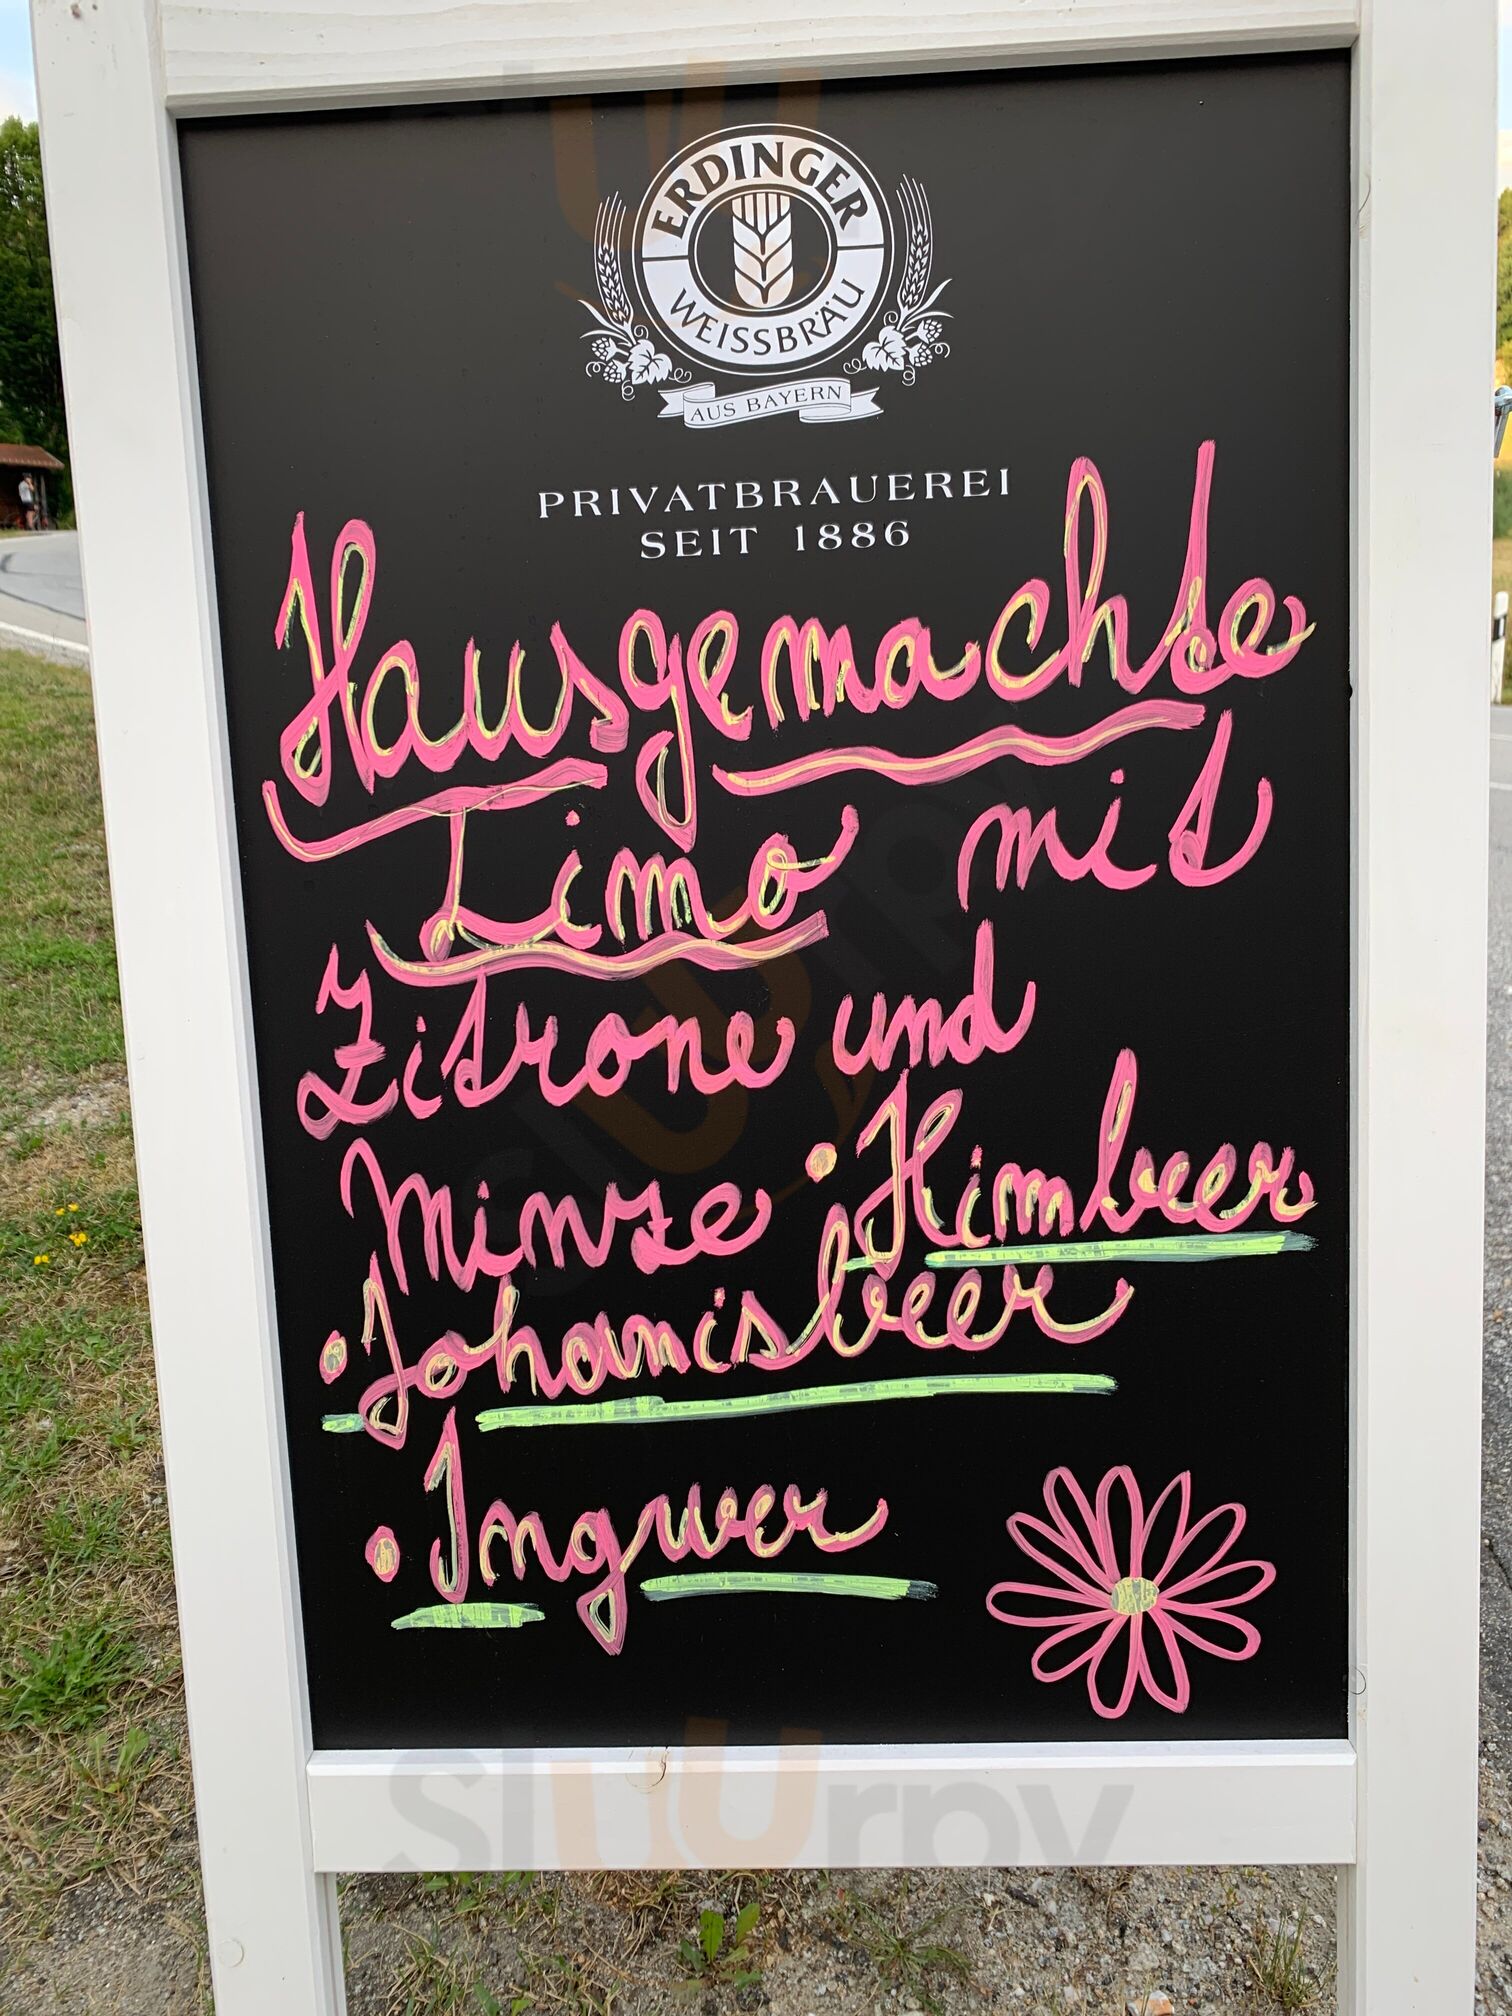 ERDINGER
WEISSBRÄU
AUS BAYERN
PRIVATBRAUEREI
SEIT 1886
Hausgemachte
Limo mit
Zitrone und
Minze • Himbeer
• Johanisbeer
• Ingwer
sluurpy
sluurpy